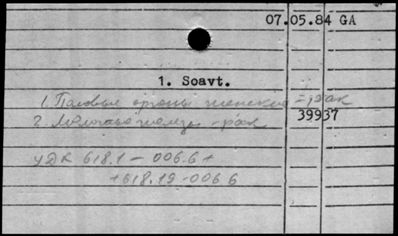 07.05.84 GA
1. Soavt.
1. Половые органы женские – рак
39937
2. Молочная железа – рак
УДК 618.1 – 006.6 +
+ 618.19 – 006 6